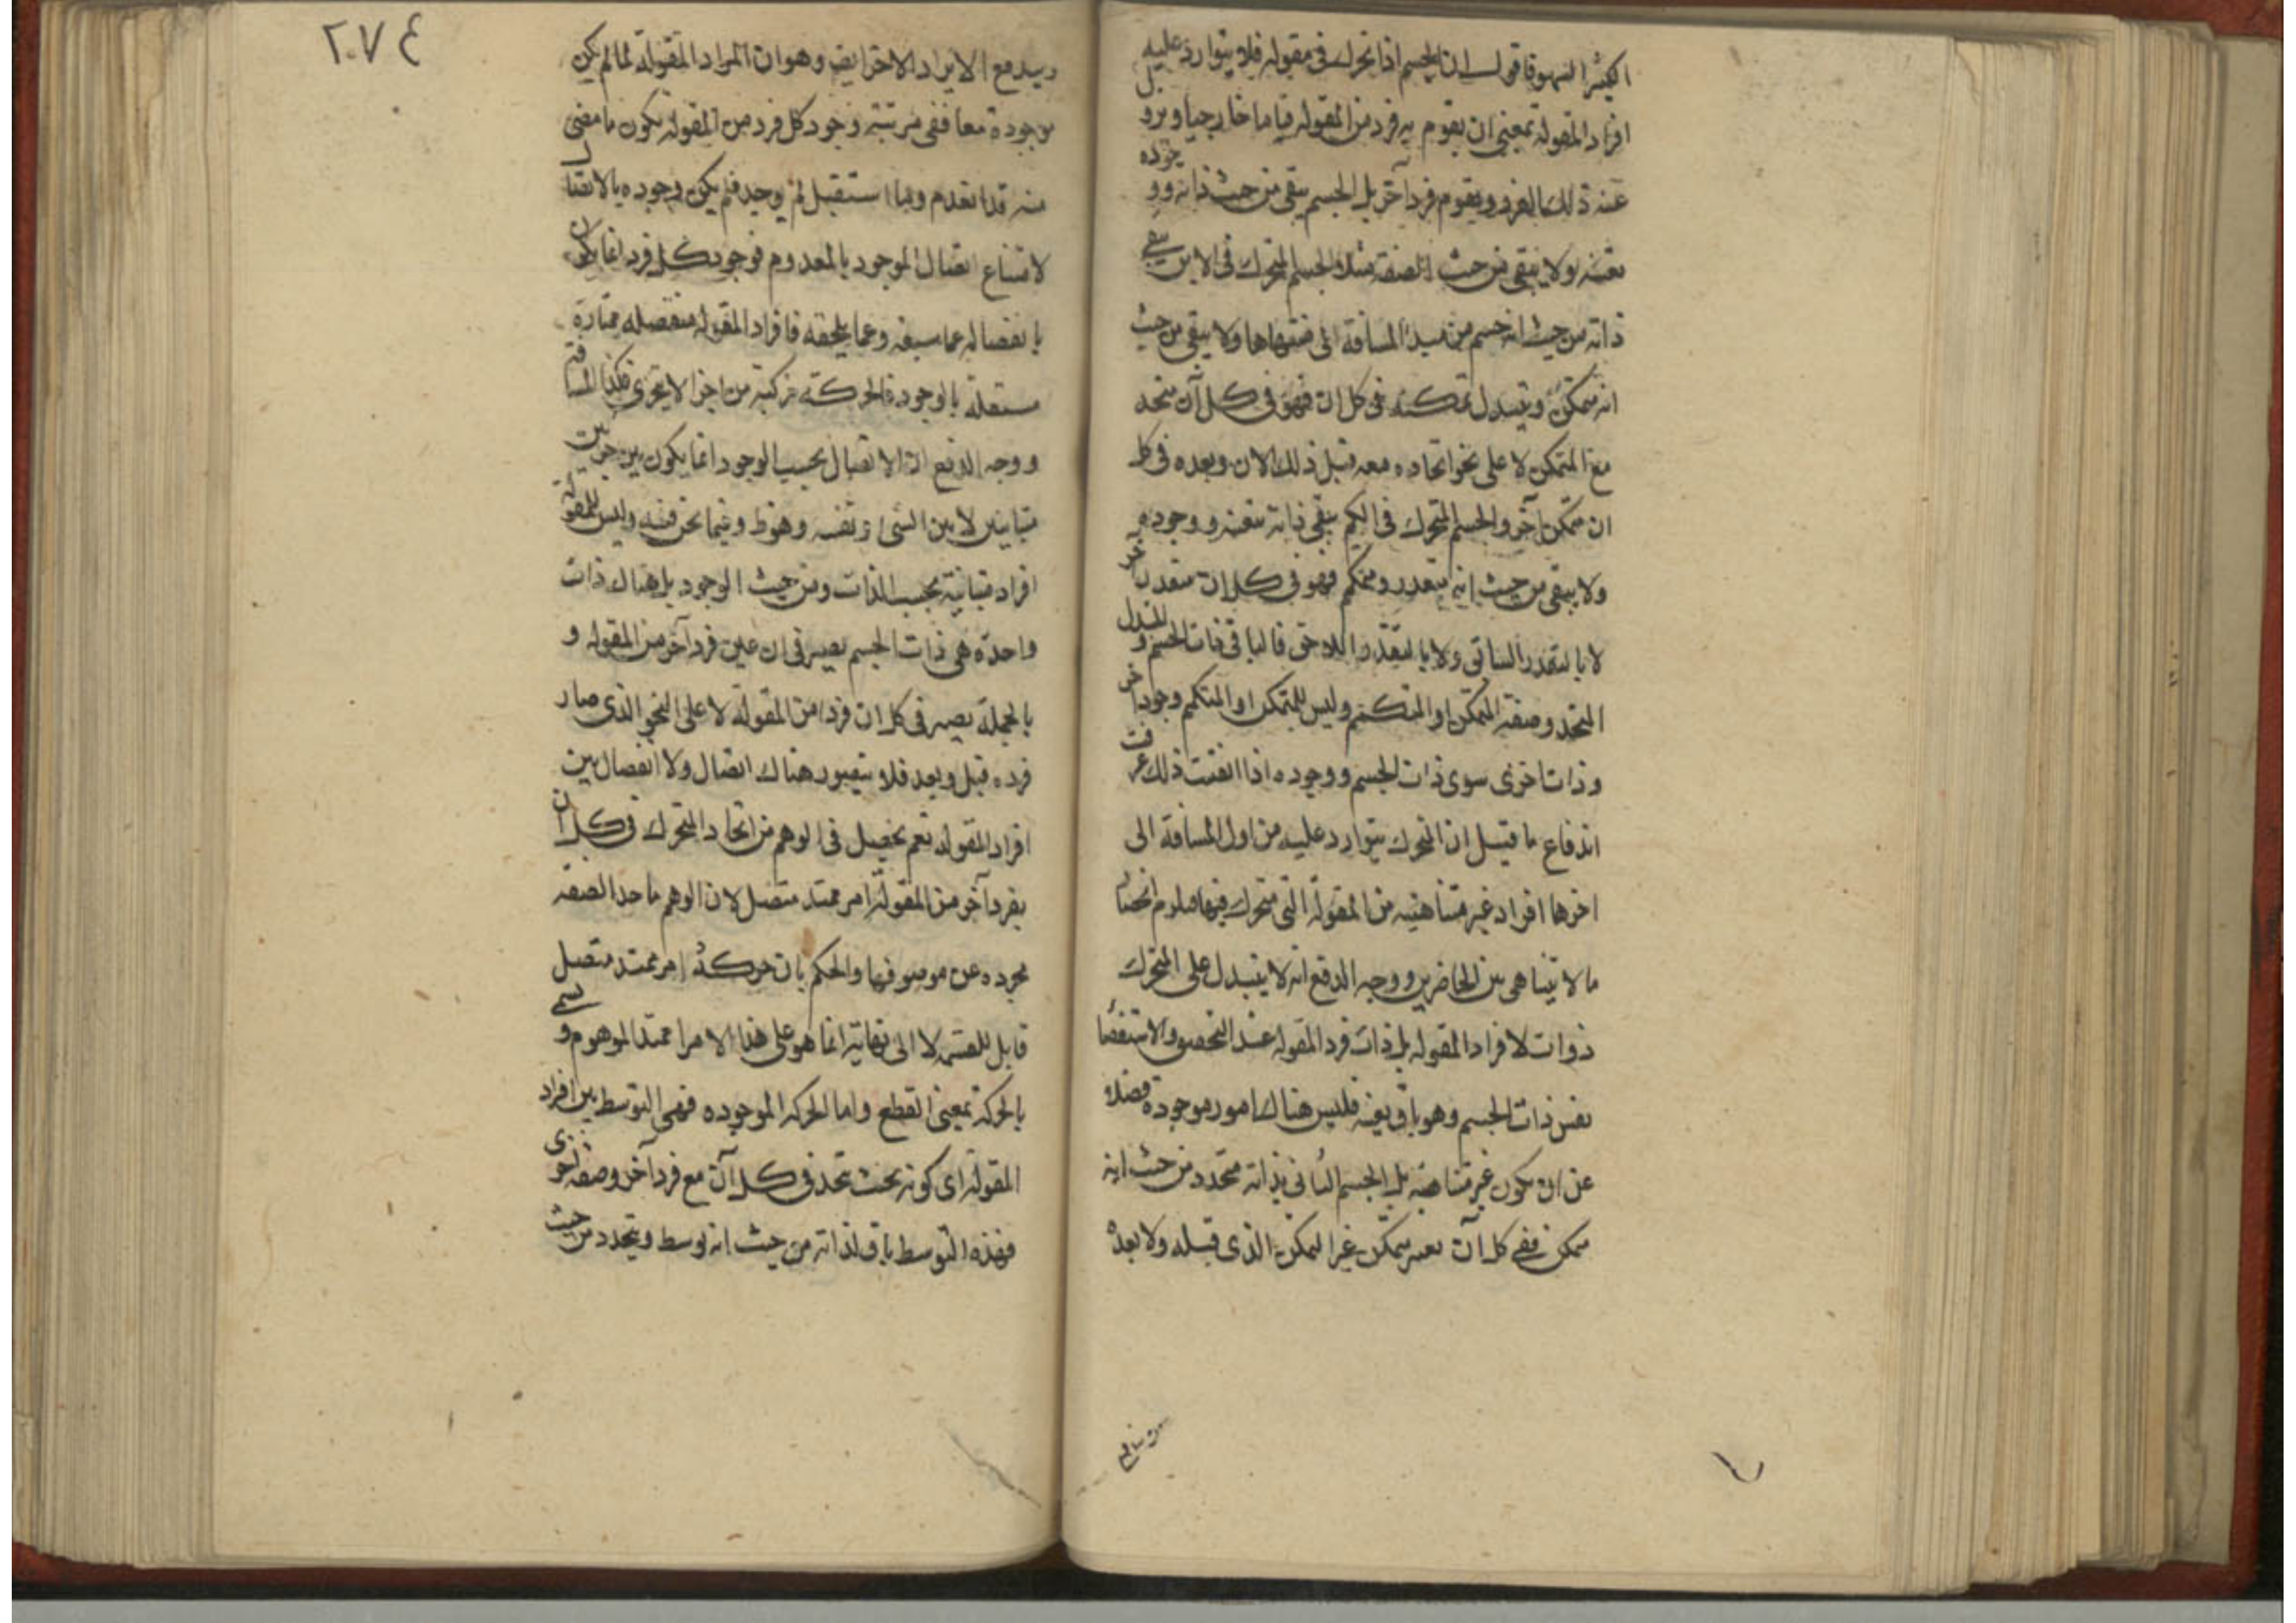 الكثير السهو فاقول ان الجسم اذا تحرك فى مقوله فلا يتوارد عليه
افراد المقوله بمعنى ان يقوم به فرد من المقوله قياما خارجيا ويزول
عنه ذلك الفرد ويقوم فرد آخر بل الجسم يبقى من حيث ذاته ووجوده
بعينه ولا يبقى من حيث الصفة مثلا الجسم المتحرك فى الاين يبقى
ذاته من حيث انه جسم من مبدأ المسافة الى منتهاها ولا يبقى من حيث
انه متمكن ويتبدل تمكنه فى كل ان فهو فى كل آن متحد
مع المتمكن لا على نحو اتحاده معه قبل ذلك الان وبعده فى كل
ان متمكن آخر والجسم المتحرك فى الكم يبقى ذاته بعينه ووجوده
ولا يبقى من حيث انه متقدر ومتكمم فهو فى كل ان متقدر اخر
لا بالمتقدر السابق ولا بالمتقدر اللاحق فالباقى ذات الجسم والمتبدل
المتحد وصفة المتمكن او المتكمم وليس للمتمكن او المتكمم وجود اخر
وذات اخرى سوى ذات الجسم ووجوده اذا اتقنت ذلك عرفت
اندفاع ما قيل ان المتحرك يتوارد عليه من اول المسافة الى
اخرها افراد غير متناهية من المقولة التى متحرك فيها فيلزم انحصار
ما لا يتناهى بين الحاضرين ووجه الدفع انه لا يتبدل على المتحرك
ذوات لافراد المقوله بل ذات فرد المقوله عند التحصيل والاستقصاء
نفس ذات الجسم وهو باق بعينه فليس هناك امور موجودة فضلا
عن ان يكون غير متناهية بل الجسم الثانى بذاته متجدد من حيث انه
متمكن ففى كل آن يعتبر تمكن غير التمكن الذى قبله ولا بعده
٢٠٧٤
ويندفع الايراد الاخر ايضا وهو ان افراد المقولة لما لم يكن
موجودة معا ففى مرتبة وجود كل فرد من المقوله يكون ما مضى
منه قد انعدم وما استقبل لم يوجد فلم يكن وجوده بالاتصال
لامتناع اتصال الموجود بالمعدوم فوجود كل فرد انما يكون
بانفصاله عما سبقه وعما يلحقه فافراد المقوله منفصله ممتازة
مستقلة بالوجود فالحركة مركبة من اجزا لا يتجزى فكذا المسافة
ووجه الدفع ان الاتصال بحسب الوجود انما يكون بين جزئين
متباينين لا بين الشئ ونفسه وهو ظ وفيما نحن فيه وليس للمقولة
افراد متباينة بحسب الذات ومن حيث الوجود بل هناك ذات
واحدة هى ذات الجسم يصير فى ان عين فرد آخر من المقوله و
بالجملة يصير فى كل ان فردا من المقولة لا على النحو الذى صار
فرده قبل وبعد فلا يتصور هناك اتصال ولا انفصال بين
افراد المقوله نعم يحصل فى الوهم من اتحاد المتحرك فى كل ان
بفرد آخر من المقولة امر ممتد متصل لان الوهم ياخذ الصفة
مجرده عن موصوفها والحكم بان حركة امر ممتد متصل
قابل للقسمه لا الى نهاية انما هو على هذا الامر الممتد الموهوم ويسمى
بالحركة بمعنى القطع واما الحركه الموجوده فهى التوسط بين افراد
المقولة اى كونه بحيث يتحد فى كل آن مع فرد آخر وصفة اخرى
فهذه التوسط باق لذاته من حيث انه توسط ويتجدد من حيث